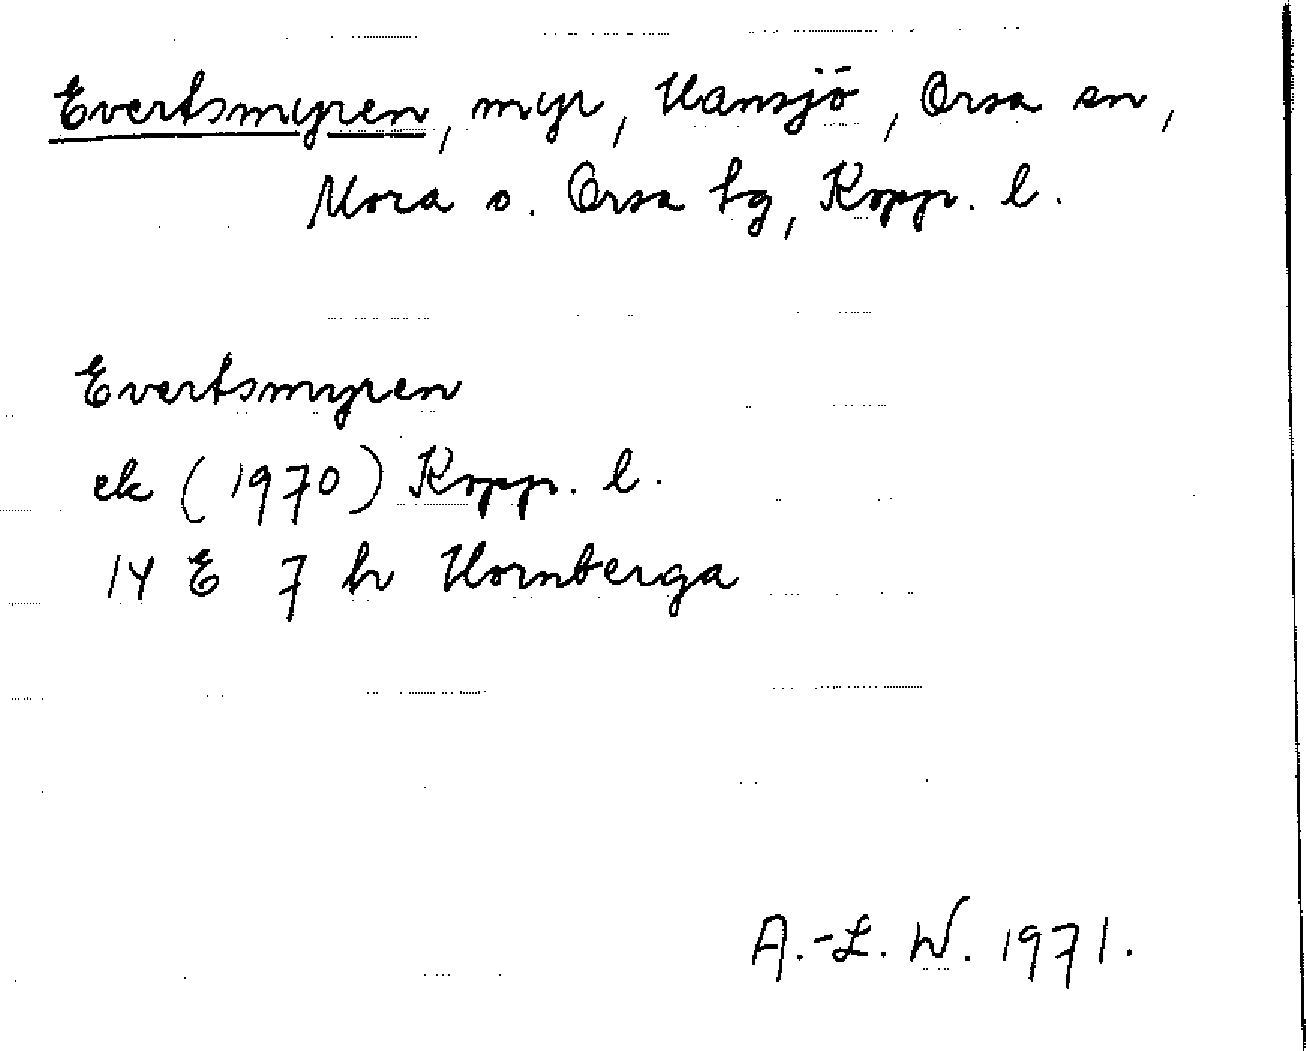 Evertsmyren, myr, Hansjö, Orsa sn,
Mora o. Orsa tg, Kopp. l.
Evertsmyren
ek (1970) Kopp. l.
14 E 7 h Hornberga
A.-L. W. 1971.